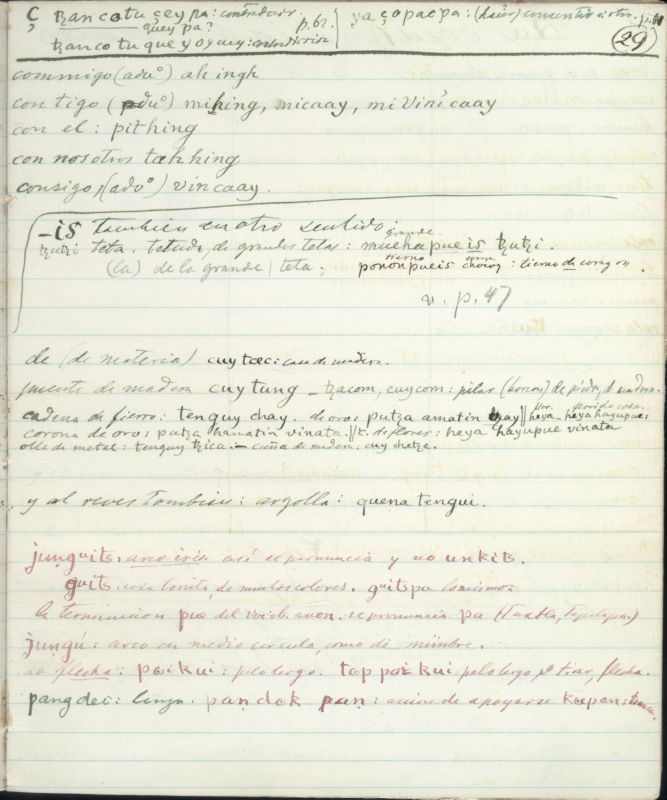 Ç tzancotuçeypa: contradecir. p. 62. ya çopacpa: (hacer) consentir a otro. p. 61
quey pa?
tzanco tu que yoyuy: contradiccion (29)
commigo (adv.º) ahingh
contigo (adv.º) mihing, micaay, mi Viricaay
con el: pithing
con nosotros tahhing
consigo, (adv.º) vin caay.
-is tambien en otro sentido: grande.
tzutzi teta. tetuda, de grandes tetas: muchapueis tzutzi.
(la) de la grande | teta; tierno corazon
pononpueis chocoy: tierno de corazon.
v. p. 47
de (de materia) cuytæc: casa de madera.
puente de madera cuytung - tzacom, cuycom: pilar (horcon) de piedra, de madera.
cadena de fierro: tenguy chay. de oro: putza amatin chay || flor. heya florida cosa. heya hayupue:
corona de oro: putza hamatin vinata. || c. de flores: heya hayupue vinata
olla de metal: tenguy tzica. - cuña de madera: cuy shetze.
y al reves tambien: argolla: quena tengui.
junguits: arco iris. asi se pronuncia y no unkits.
guits: cosa bonita de muchos colores. guitspa lo mismo
la terminacion pue del vocab. anon. se pronuncia pa (Tuxtla, Tapalapa)
jungú: arco en medio circulo, como de mimbre.
flecha: poikui: palo largo. top poikui: palo largo tirar, flecha.
pangdei: lengua. pandok pan: accion de apoyarse kopan: